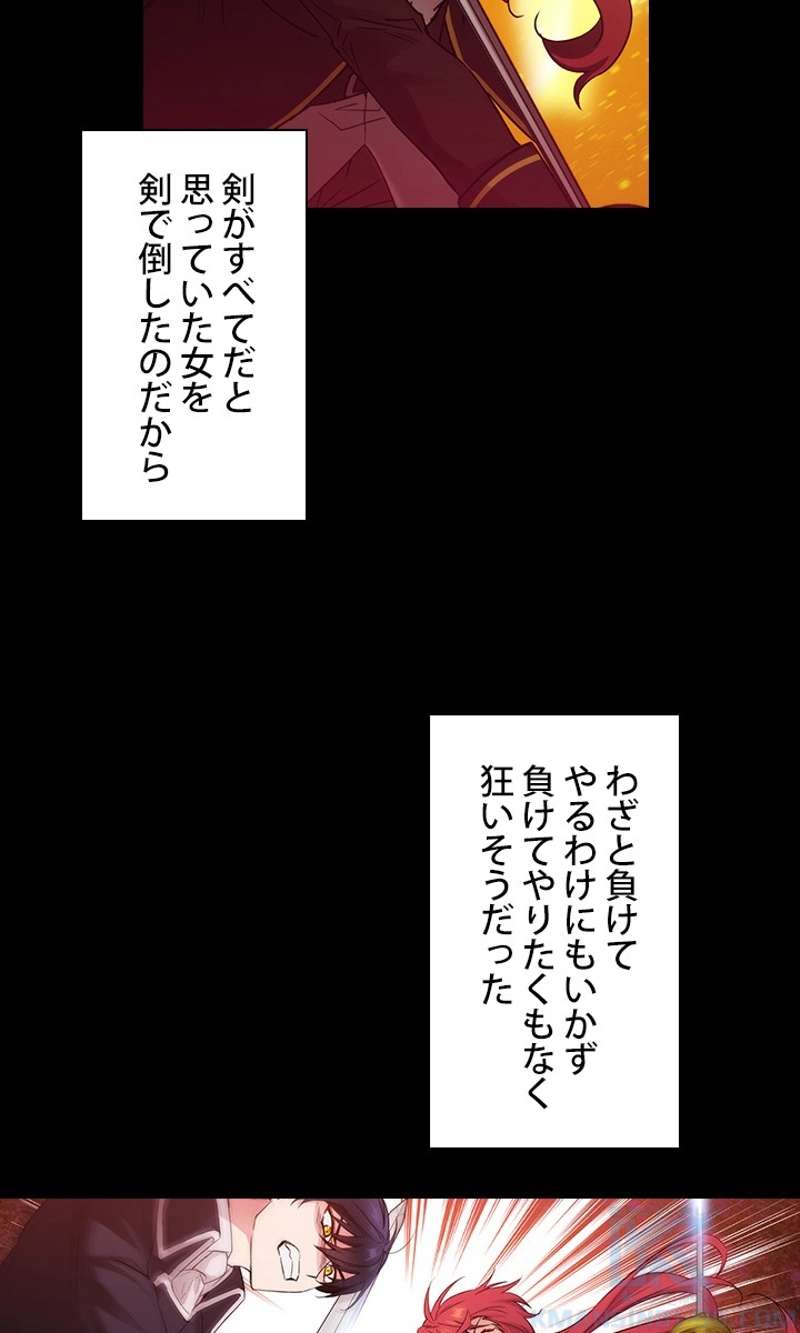 剣がすべてだと
思っていた女を
剣で倒したのだから
わざと負けて
やるわけにもいかず
負けてやりたくもなく
狂いそうだった